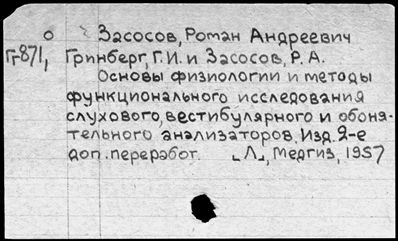 Засосов, Роман Андреевич
Гр-871, Гринберг, Г.И. и Засосов, Р.А.
Основы физиологии и методы
функционального исследования
слухового, вестибулярного и обоня-
тельного анализаторов. Изд. 2-е
доп. переработ. [Л.], Медгиз, 1957